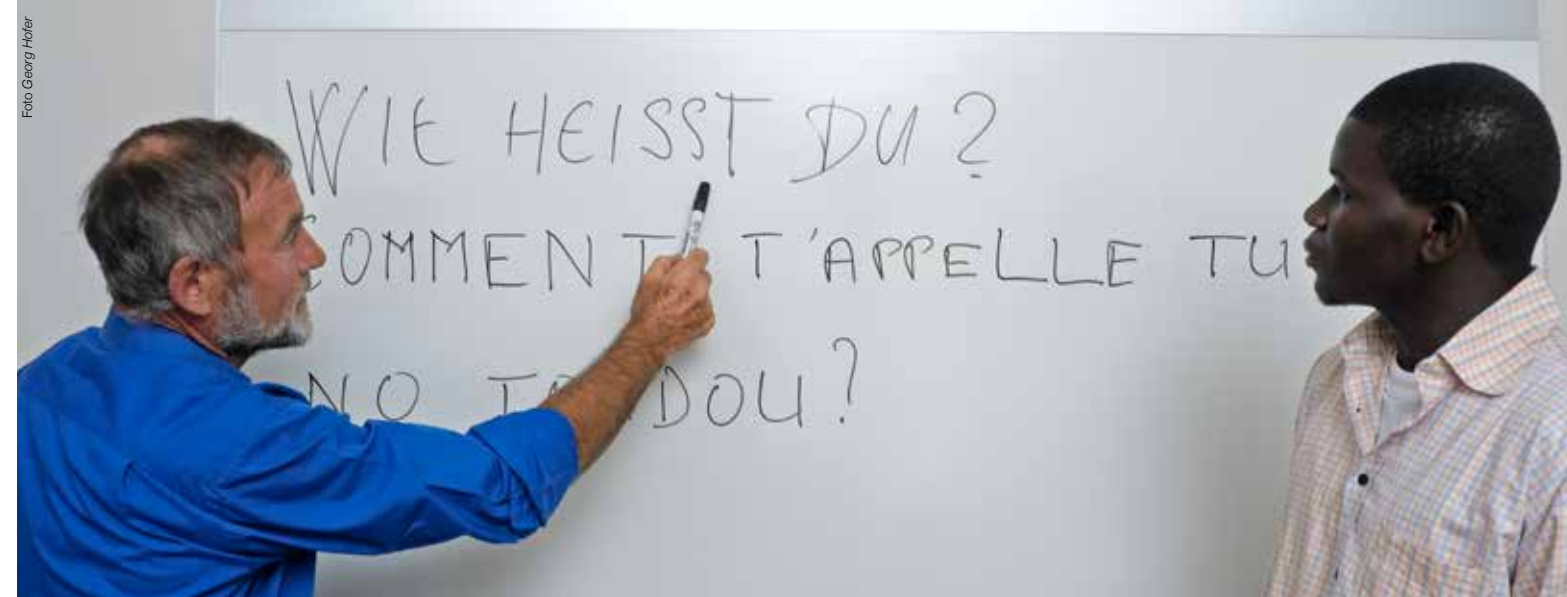 Foto Georg Hofer
WIE HEISST DU?
COMMENT T'APPELLE TU
NO DOU?